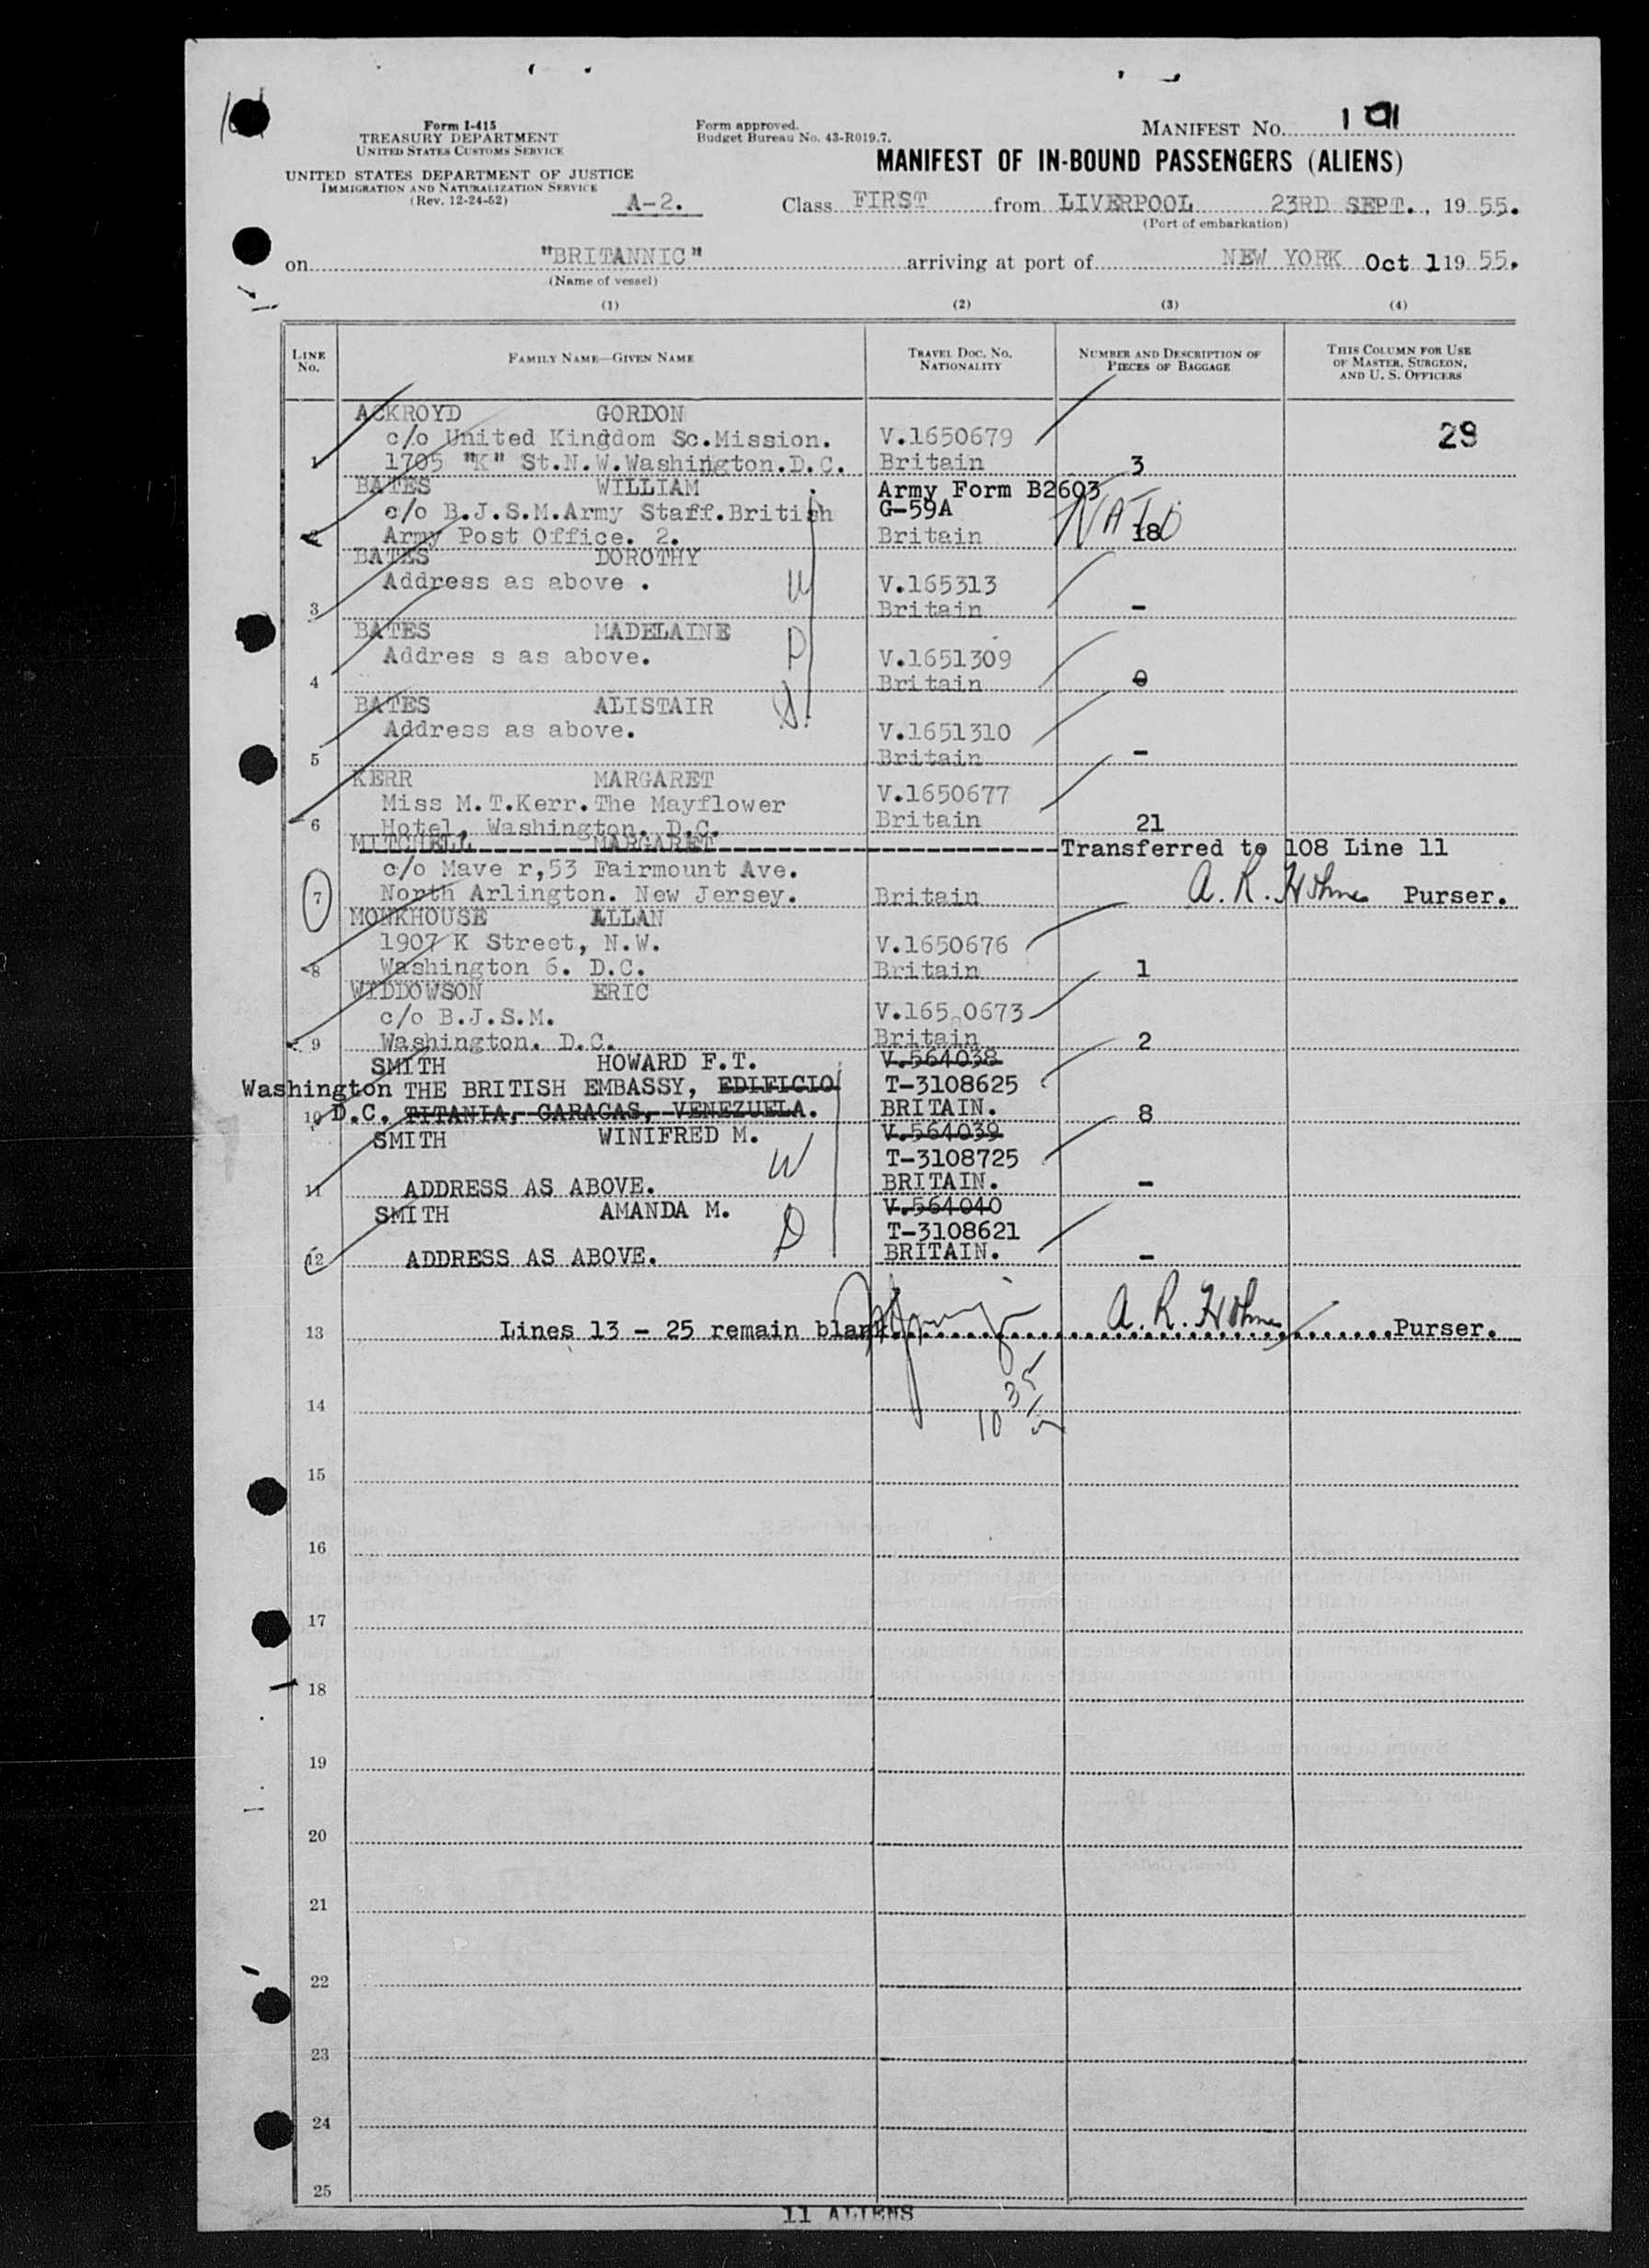 Form I-415
TREASURY DEPARTMENT
UNITED STATES CUSTOMS SERVICE
UNITED STATES DEPARTMENT OF JUSTICE
IMMIGRATION AND NATURALIZATION SERVICE
(Rev. 12-24-52)
A-2.
Form approved.
Budget Bureau No. 43-R019.7.
MANIFEST NO. 101
MANIFEST OF IN-BOUND PASSENGERS (ALIENS)
Class FIRST from LIVERPOOL 23RD SEPT., 1955.
(Port of embarkation)
on "BRITANNIC" arriving at port of NEW YORK Oct 1 1955.
(Name of vessel)
(1) (2) (3) (4)
LINE No. FAMILY NAME—GIVEN NAME TRAVEL DOC. NO. NATIONALITY NUMBER AND DESCRIPTION OF PIECES OF BAGGAGE THIS COLUMN FOR USE OF MASTER, SURGEON, AND U. S. OFFICERS
ACKROYD GORDON
c/o United Kingdom Sc.Mission. V.1650679 29
1 1705 "K" St.N.W.Washington.D.C. Britain 3
BATES WILLIAM Army Form B2603
c/o B.J.S.M.Army Staff.British G-59A NATO
2 Army Post Office. 2. Britain 18
BATES DOROTHY
Address as above . W V.165313
3 Britain -
BATES MADELAINE D
Addres s as above. V.1651309
4 Britain 0
BATES ALISTAIR S.
Address as above. V.1651310
5 Britain -
KERR MARGARET
Miss M.T.Kerr.The Mayflower V.1650677
6 Hotel, Washington. D.C. Britain 21
MITCHELL MARGARET Transferred to 108 Line 11
c/o Mave r,53 Fairmount Ave.
7 North Arlington. New Jersey. Britain A. R. Purser.
MONKHOUSE ALLAN
1907 K Street, N.W. V.1650676
8 Washington 6. D.C. Britain 1
WIDDOWSON ERIC
c/o B.J.S.M. V.165 0673
9 Washington. D.C. Britain 2
SMITH HOWARD F.T. V.564038
Washington THE BRITISH EMBASSY, EDIFICIO T-3108625
10 D.C. TITANIA, CARACAS, VENEZUELA. BRITAIN. 8
SMITH WINIFRED M. V.564039
W T-3108725
11 ADDRESS AS ABOVE. BRITAIN. -
SMITH AMANDA M. V.564040
D T-3108621
12 ADDRESS AS ABOVE. BRITAIN. -
13 Lines 13 - 25 remain blank A. R. Purser.
14
15
16
17
18
19
20
21
22
23
24
25
11 ALIENS